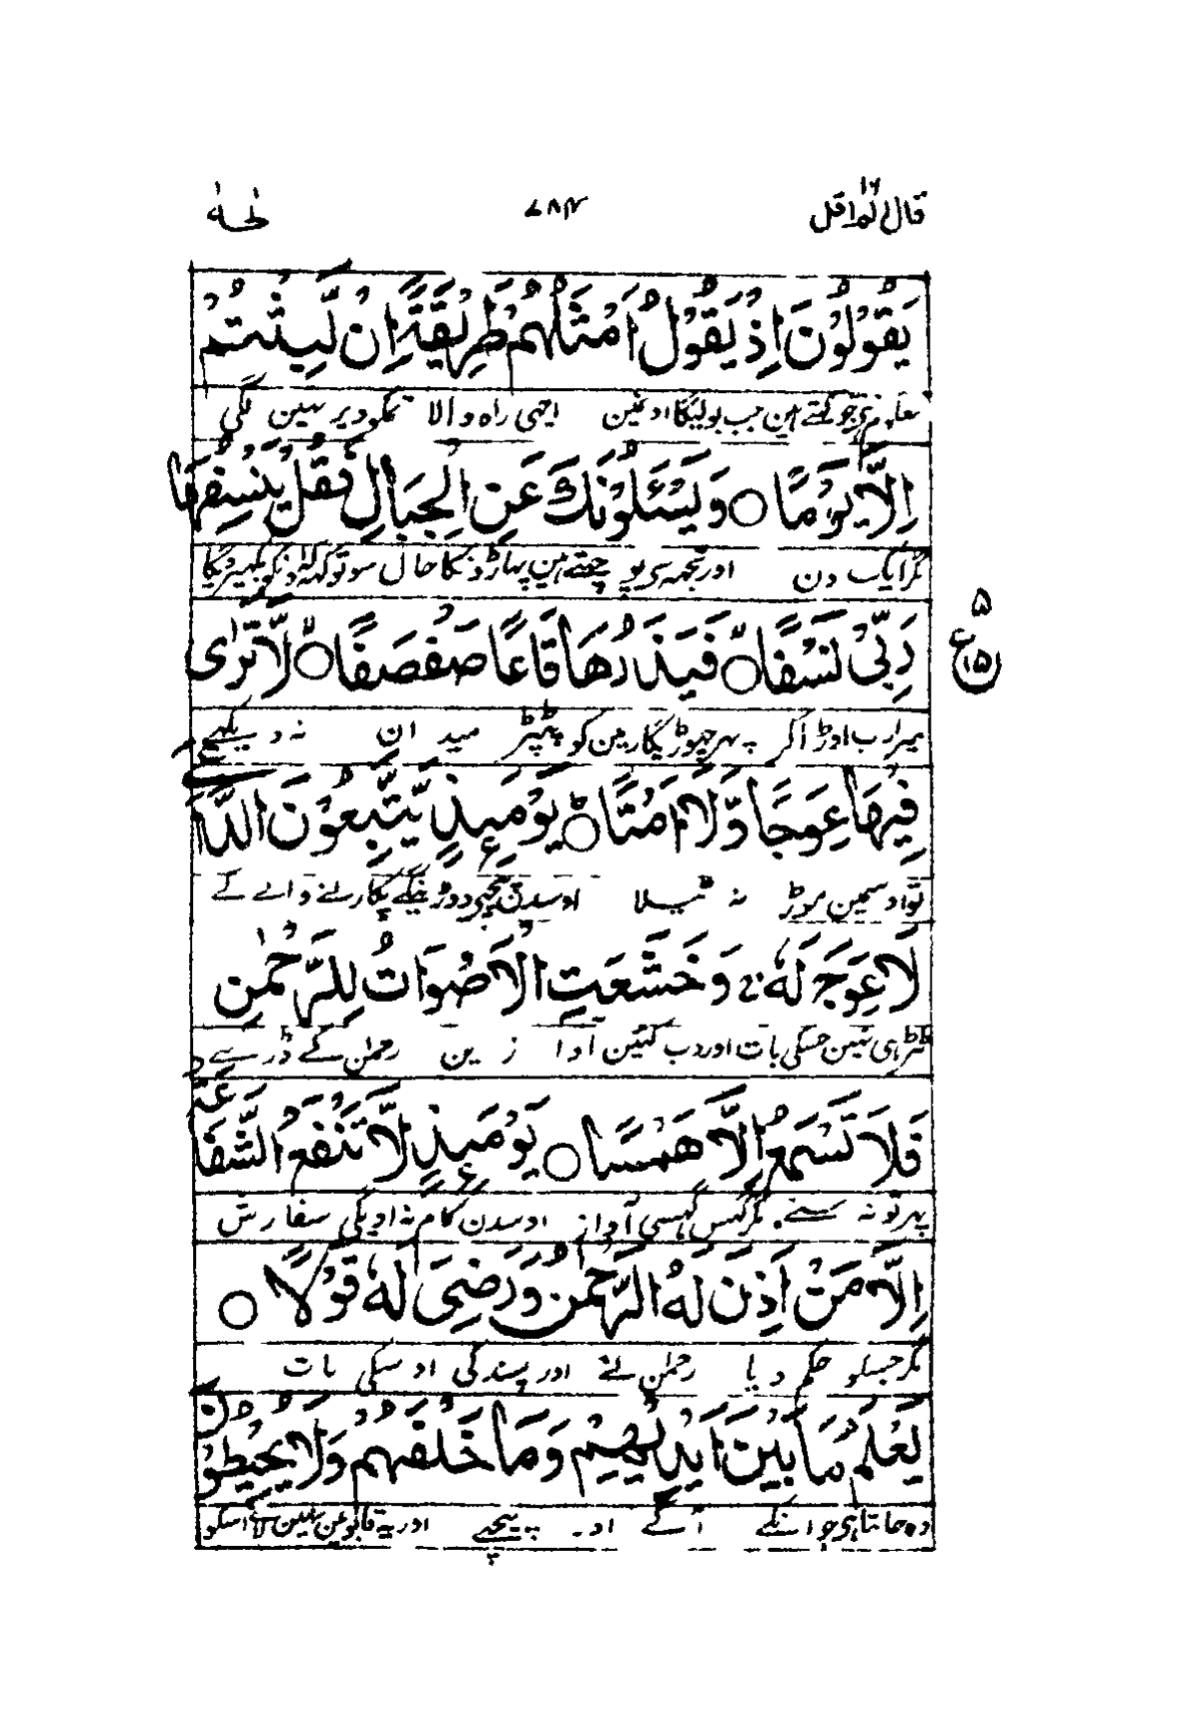 قال الم ١٦ طٰهٰ
يَقُوْلُوْنَ اِذْ يَقُوْلُ اَمْثَلُهُمْ طَرِيْقَةً اِنْ لَّبِثْتُمْ
جو کہتے ہین جب بولیگا اونمین اچھی راہ والا تمکو دیر نہین لگی
اِلَّا يَوْمًا ○ وَيَسْـَٔلُوْنَكَ عَنِ الْجِبَالِ فَقُلْ يَنْسِفُهَا
مگر ایک دن اور تجھہ سی پوچھتے ہین پہاڑونکا حال سو تو کہہ اونکو بکھیر دیگا
رَبِّيْ نَسْفًا ○ فَيَذَرُهَا قَاعًا صَفْصَفًا ○ لَّا تَرٰى
۵
ع
۱۵
میرا رب اوڑا کر پہر چھوڑیگا زمین کو پٹپر میدان نہ دیکھے
فِيْهَا عِوَجًا وَّلَا اَمْتًا ○ يَوْمَىِٕذٍ يَّتَّبِعُوْنَ الدَّاعِيَ
تو اوسمین موڑ نہ ٹیلا اوسدن پیچھے دوڑینگے پکارنے والے کے
لَا عِوَجَ لَهٗ ۚ وَخَشَعَتِ الْاَصْوَاتُ لِلرَّحْمٰنِ
ٹیڑہی نہین جسکی بات اور دب گئین آوازین رحمٰن کے ڈر سے
فَلَا تَسْمَعُ اِلَّا هَمْسًا ○ يَوْمَىِٕذٍ لَّا تَنْفَعُ الشَّفَاعَةُ
پہر تو نہ سنے مگر کہس کہسی آواز اوسدن کام نہ آویگی سفارش
اِلَّا مَنْ اَذِنَ لَهُ الرَّحْمٰنُ وَرَضِيَ لَهٗ قَوْلًا ○
مگر جسکو حکم دیا رحمٰن نے اور پسند کی اوسکی بات
يَعْلَمُ مَا بَيْنَ اَيْدِيْهِمْ وَمَا خَلْفَهُمْ وَلَا يُحِيْطُوْنَ
وہ جانتا ہی جو انکے آگے اور پیچھے اور یہ قابو مین نہین لاتے اسکو